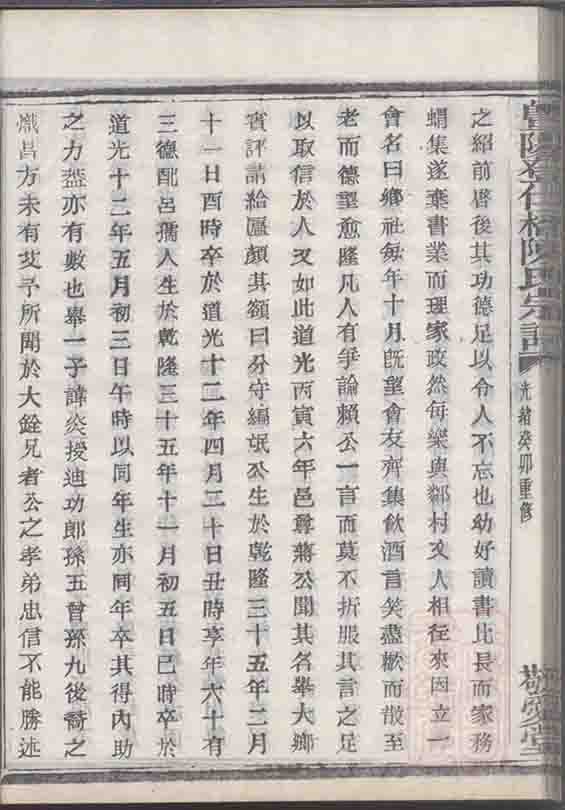 之紹前啓後其功德足以令人不忘也幼好讀書比長而家務
蝟集遂棄書業而理家政然每樂與鄰村文人相往來因立一
會名曰鄉社每年十月旣望會友齊集飲酒言笑盡歡而散至
老而德望愈隆凡人有爭論賴公一言而莫不折服其言之足
以取信於人又如此道光丙寅六年邑尊蔣公聞其名舉大鄉
賓評請給匾顏其額曰分守編氓公生於乾隆三十五年二月
十一日酉時卒於道光十二年四月二十日丑時享年六十有
三德配呂孺人生於乾隆三十五年十一月初五日巳時卒於
道光十二年五月初三日午時以同年生亦同年卒其得內助
之力蓋亦有數也舉一子諱炎授迪功郎孫五曾孫九後裔之
熾昌方未有艾予所聞於大銓兄者公之孝弟忠信不能勝述
陳氏宗譜
光緒癸卯重修
敬愛堂